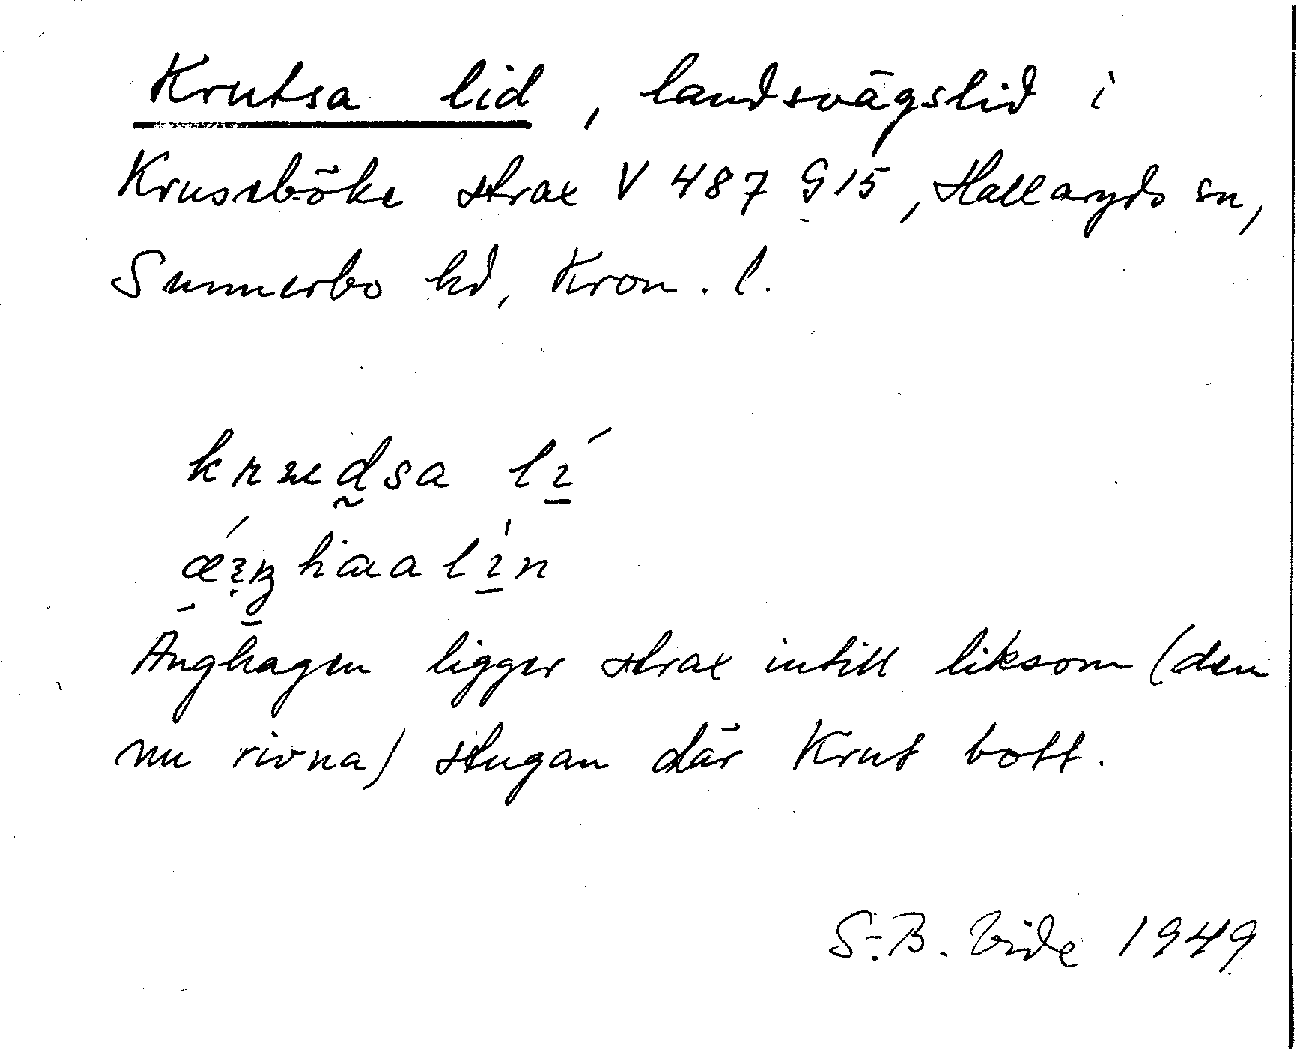 Krutsa lid, landsvägslid i
Kruseböke strax V 487 G15, Hallaryds sn,
Sunnerbo hd, Kron. l.
Änghagen ligger strax intill liksom (den
nu rivna) stugan där Krut bott.
S-B. Vide 1949